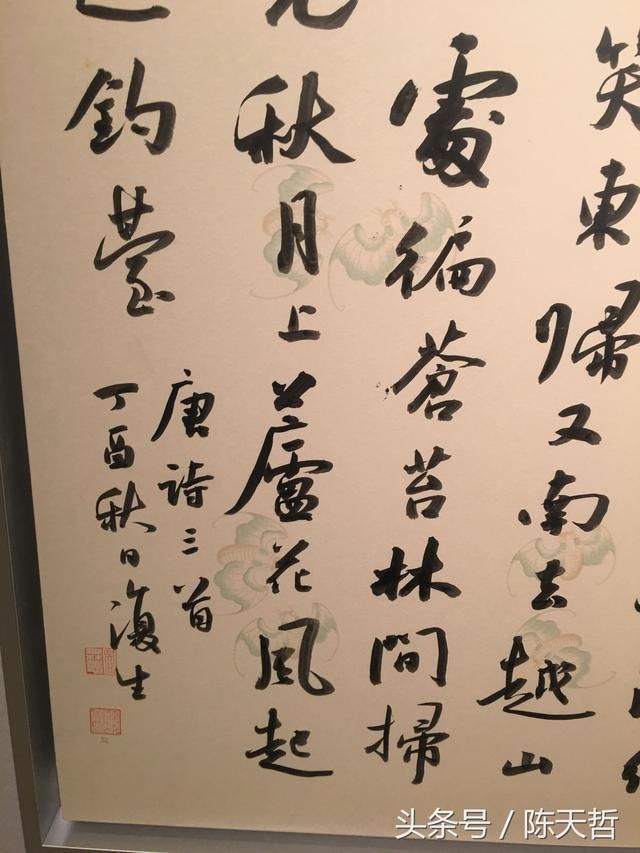 笑東歸又南去越山
處徧蒼苔林間掃
秋月上蘆花風起
釣臺
唐詩三首
丁酉秋日復生
头条号 / 陈天哲